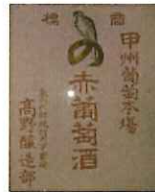 商標
甲州葡萄本場
赤葡萄酒
高野釀造部